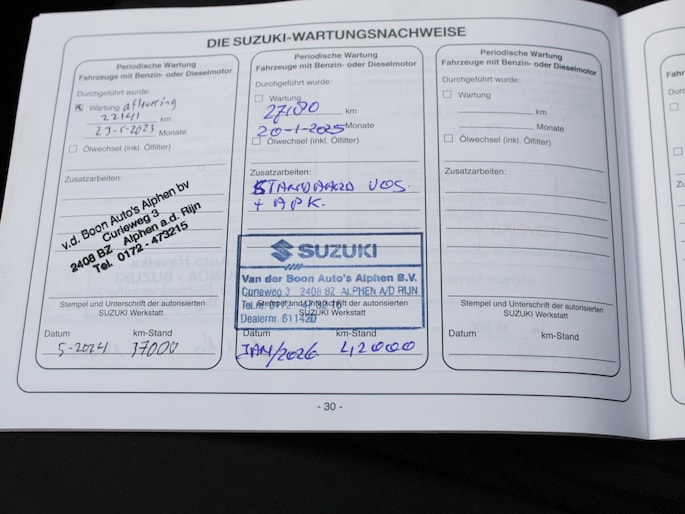 DIE SUZUKI-WARTUNGSNACHWEISE
Periodische Wartung
Fahrzeuge mit Benzin- oder Dieselmotor
Durchgeführt wurde:
Wartung aflevering
22141 km
23-5-2023 Monate
Ölwechsel (inkl. Ölfilter)
Zusatzarbeiten:
v.d. Boon Auto's Alphen bv
Curieweg 3
2408 BZ Alphen a.d. Rijn
Tel. 0172 - 473215
Stempel und Unterschrift der autorisierten
SUZUKI Werkstatt
Datum km-Stand
5-2024 37000
Periodische Wartung
Fahrzeuge mit Benzin- oder Dieselmotor
Durchgeführt wurde:
Wartung
km
20-1-2025 Monate
Ölwechsel (inkl. Ölfilter)
Zusatzarbeiten:
STANDAARD
+ APK.
SUZUKI
Van der Boon Auto's Alphen B.V.
Curieweg 3 2408 BZ ALPHEN A/D RIJN
Tel.nr 0172
Stempel und Unterschrift der autorisierten
SUZUKI Werkstatt
Dealernr. 611420
Datum km-Stand
JAN/2026 42000
Periodische Wartung
Fahrzeuge mit Benzin- oder Dieselmotor
Durchgeführt wurde:
Wartung
km
Monate
Ölwechsel (inkl. Ölfilter)
Zusatzarbeiten:
Stempel und Unterschrift der autorisierten
SUZUKI Werkstatt
Datum km-Stand
- 30 -